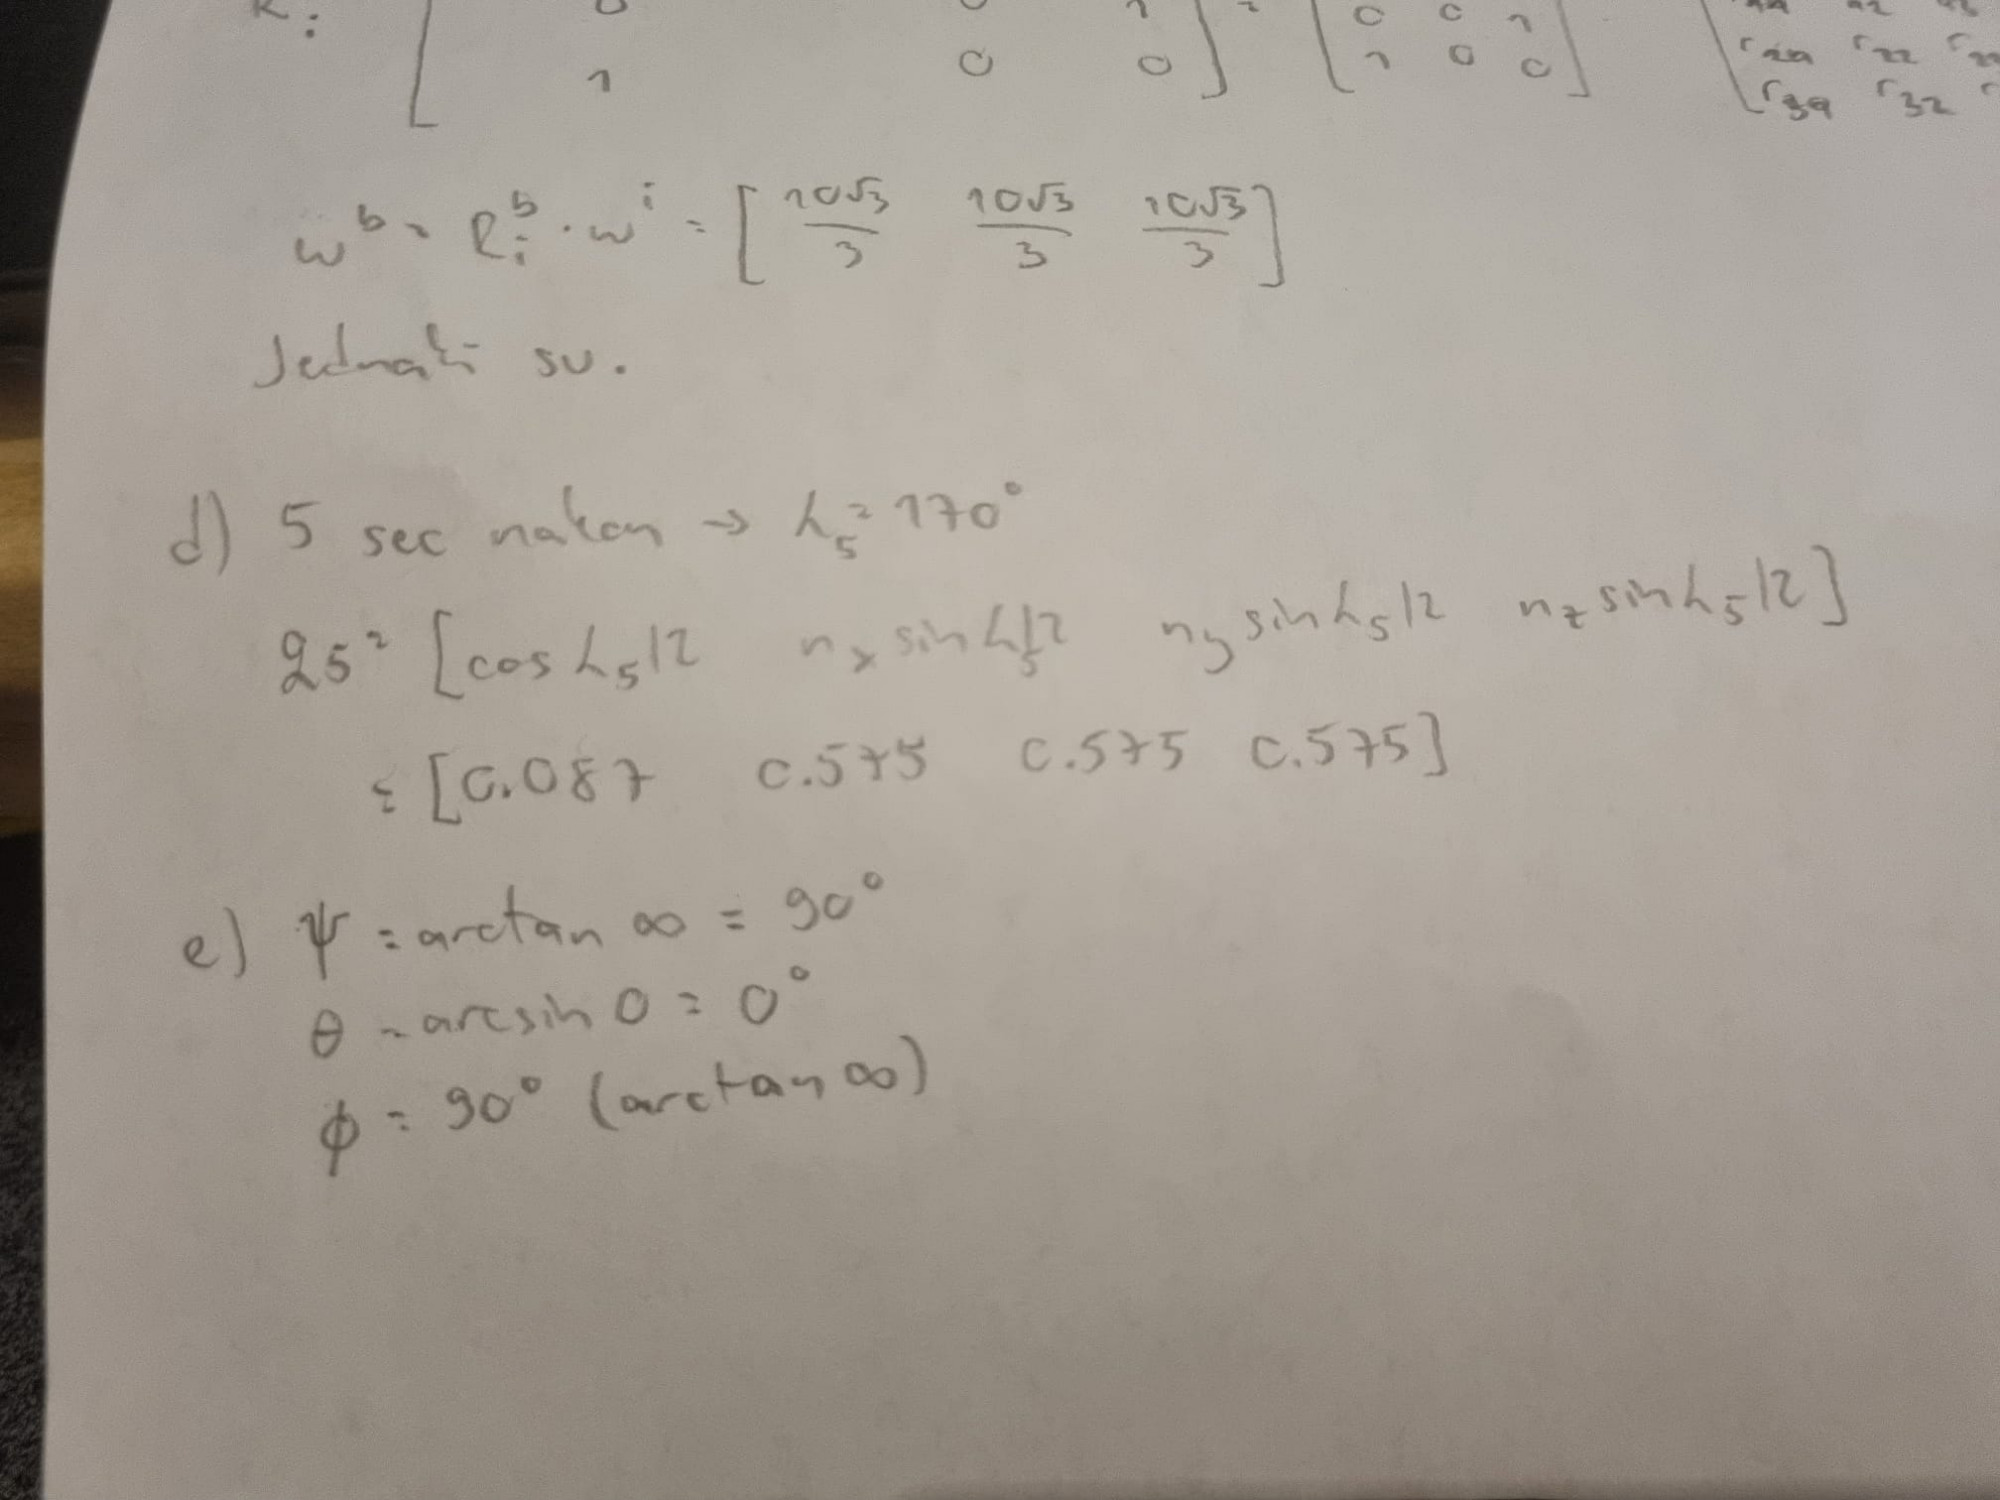 R i [ 0 0 1 ] = [ 0 0 1 ] [
1 0 0 1 0 0 r21 r22
r31 r32
ω^b = R_i^b · ω^i = [ 10√3/3 10√3/3 10√3/3 ]
Jednaki su.
d) 5 sec nakon → λ_5 = 170°
q_5 = [ cos λ_5/2 n_x sin λ_5/2 n_y sin λ_5/2 n_z sin λ_5/2 ]
= [ 0.087 0.575 0.575 0.575 ]
e) ψ = arctan ∞ = 90°
θ = arcsin 0 = 0°
ϕ = 90° (arctan ∞)